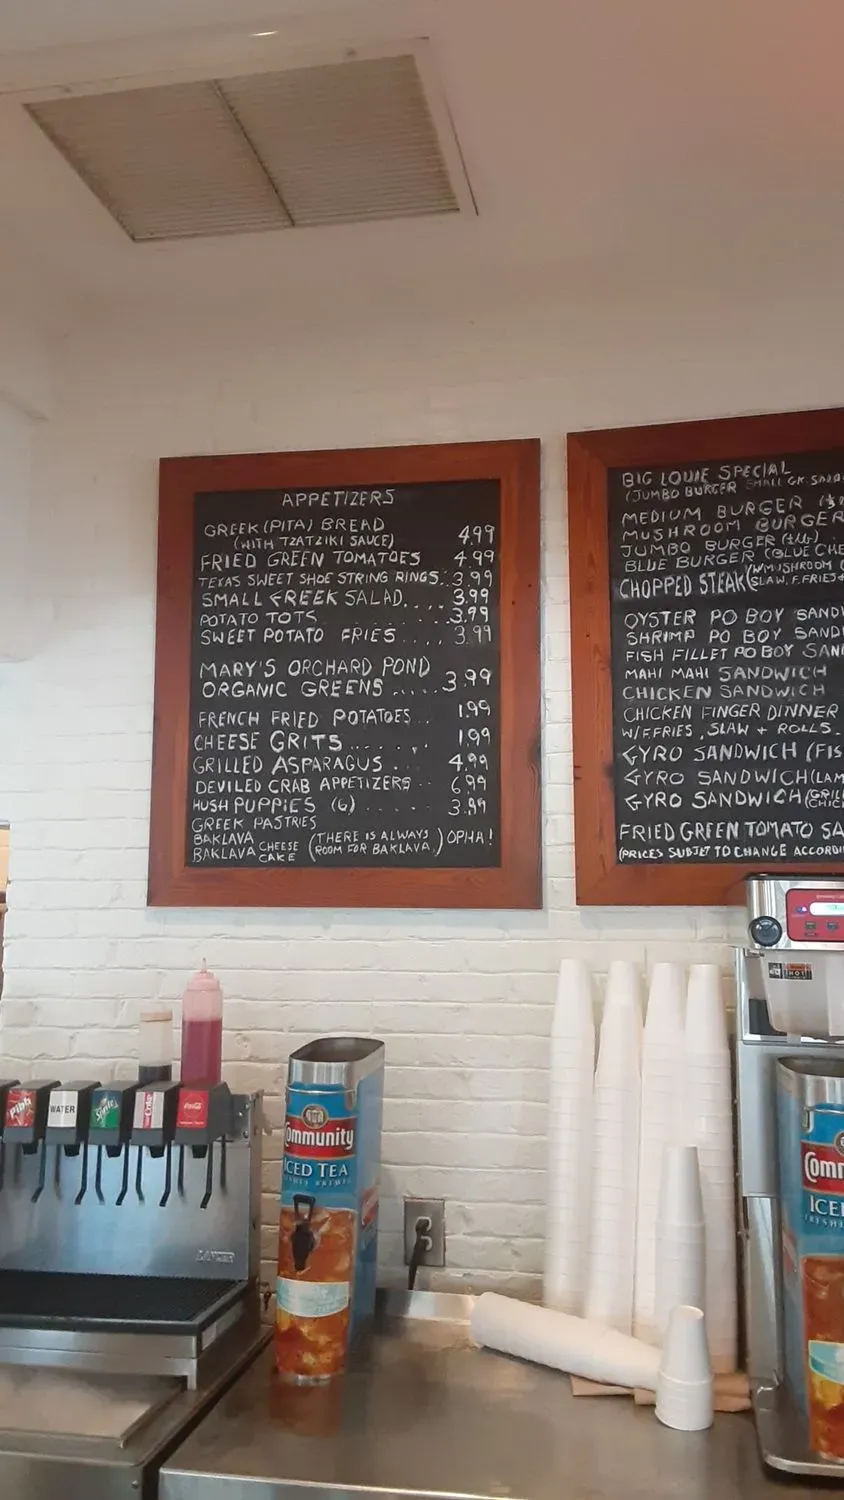 APPETIZERS
GREEK (PITA) BREAD
(WITH TZATZIKI SAUCE) 4.99
FRIED GREEN TOMATOES 4.99
TEXAS SWEET SHOE STRING RINGS..3.99
SMALL GREEK SALAD.... 3.99
POTATO TOTS ..... 3.99
SWEET POTATO FRIES .... 3.99
MARY'S ORCHARD POND
ORGANIC GREENS ..... 3.99
FRENCH FRIED POTATOES .. 1.99
CHEESE GRITS....... 1.99
GRILLED ASPARAGUS ... 4.99
DEVILED CRAB APPETIZERS .. 6.99
HUSH PUPPIES (6) ...... 3.99
GREEK PASTRIES
BAKLAVA
BAKLAVA CHEESE CAKE (THERE IS ALWAYS ROOM FOR BAKLAVA.) OPHA!
BIG LOUIE SPECIAL
(JUMBO BURGER SMALL GK. SALAD
MEDIUM BURGER
MUSHROOM BURGER
JUMBO BURGER
BLUE BURGER (BLUE CHE
CHOPPED STEAK (W/MUSHROOM
SLAW, F. FRIES
OYSTER PO BOY SAND
SHRIMP PO BOY SAND
FISH FILLET PO BOY SAN
MAHI MAHI SANDWICH
CHICKEN SANDWICH
CHICKEN FINGER DINNER
W/FRIES, SLAW + ROLLS.
GYRO SANDWICH (FIS
GYRO SANDWICH (LAM
GYRO SANDWICH (GRIL
CHIC
FRIED GREEN TOMATO SA
(PRICES SUBJET TO CHANGE ACCORDI
HOT
Pibb
WATER
Sprite
Coke
Coca-Cola
LANCER
Community
ICED TEA
FRESHLY BREWED
Comm
ICE
FRESH